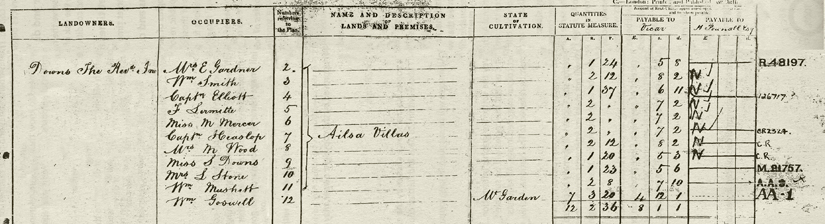 C.—London: Printed and Published
LANDOWNERS. OCCUPIERS. Numbers referring to the Plan. NAME AND DESCRIPTION OF LANDS AND PREMISES. STATE OF CULTIVATION. QUANTITIES STATUTE MEASURE. PAYABLE TO Vicar PAYABLE TO
Downs The Revd Mrs E Gardner 2 . 1 24 . 5 8 R.48197.
Wm Smith 3 . 2 12 . 8 2 N
Captn Elliott 4 . 1 37 . 6 11 N 126717
F 5 . 2 . . 7 2 N
Miss M Mercer 6 . 2 . . 7 2 N
Captn Heaslop 7 Ailsa Villas . 2 . . 7 2 N
Mrs M Wood 8 . 2 12 . 8 2 N C.R.
Miss S Downs 9 . 1 20 . 5 3 N C.R.
Mrs L Stone 10 . 1 23 . 5 6 M.21757.
Wm Mushett 11 . 2 8 . 7 10 A.A.3.
Wm Goswell 12 Mt Garden 7 3 20 4 12 1 AA-1
12 2 36 8 1 1